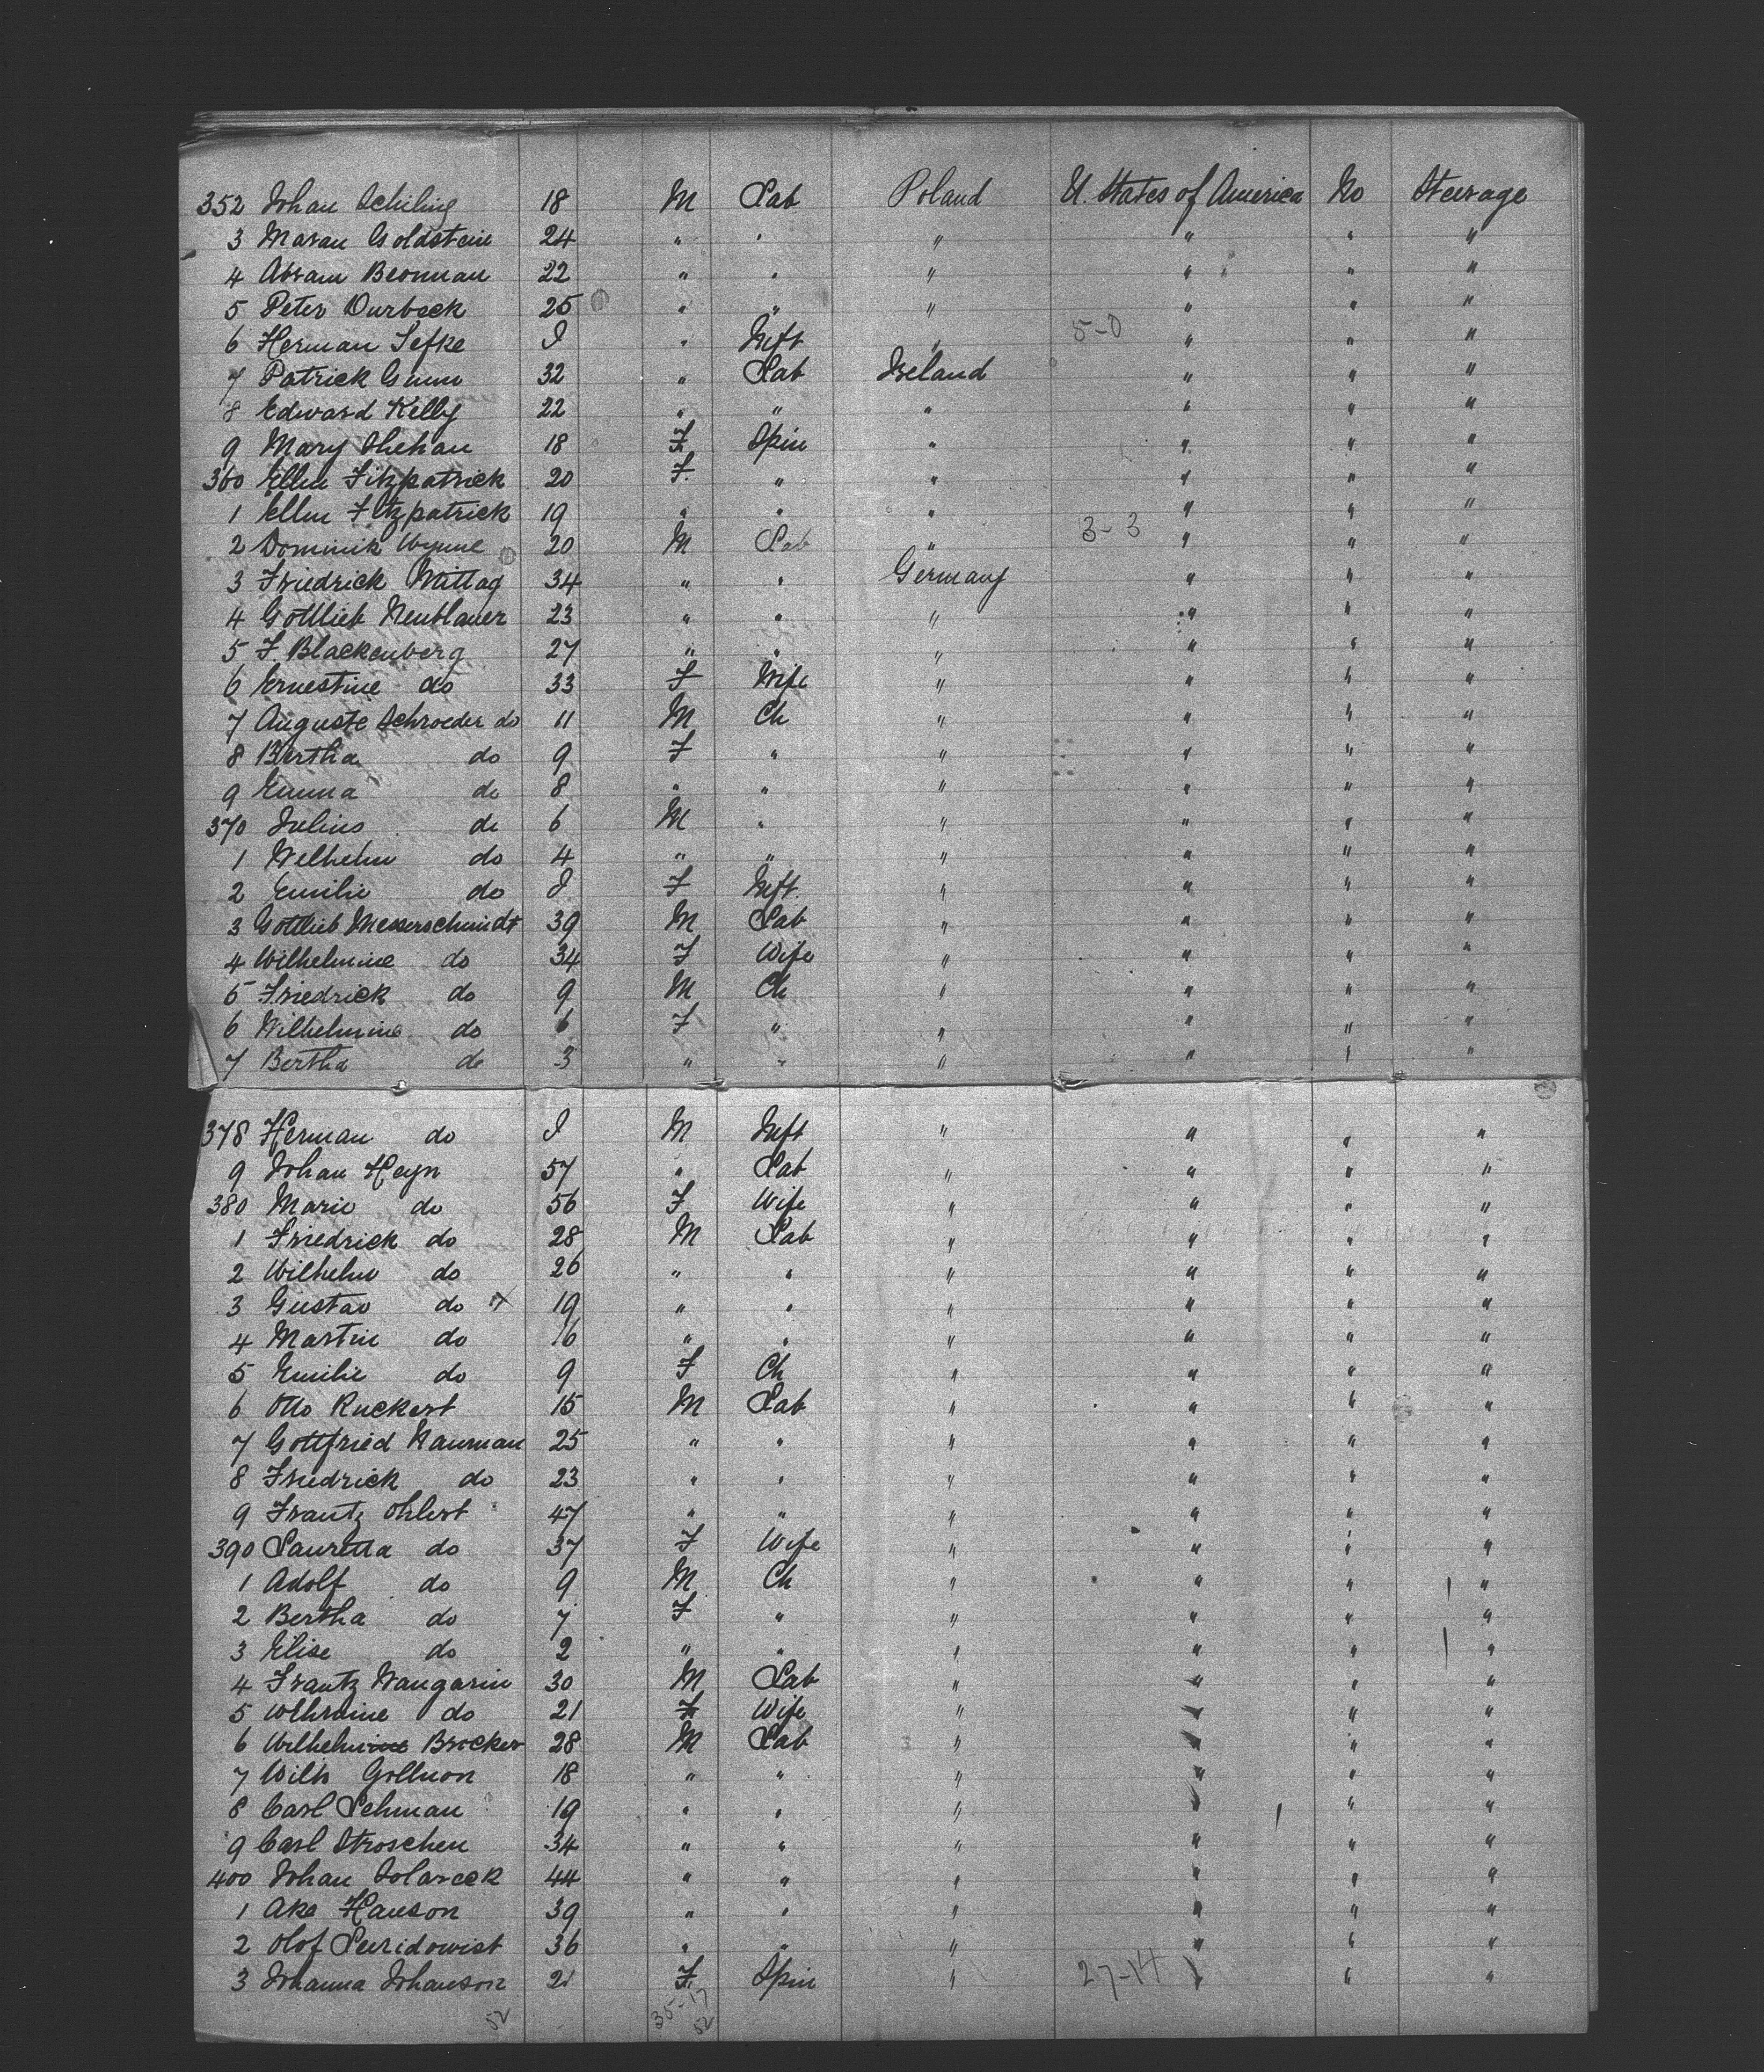 352 Johan Schiling 18 M Lab Poland U. States of America No Steerage
3 Maran Goldstein 24 " " " " " "
4 Abram Bromman 22 " " " " " "
5 Peter Durbeck 25 " " " " " "
6 Herman Sefke I " Inft " 5-0 " " "
7 Patrick Gunn 32 " Lab Ireland " " "
8 Edward Kelly 22 " " " " " "
9 Mary Shehan 18 F Spin " " " "
360 Ellen Fitzpatrick 20 F. " " " " "
1 Ellen Fitzpatrick 19 " " " " " "
2 Dominik Wynne 20 M Lab " 3-3 " " "
3 Friedrick Mittag 34 " " Germany " " "
4 Gottlieb Neublauer 23 " " " " " "
5 F. Blackenberg 27 " " " " " "
6 Ernestine do 33 F Wife " " " "
7 Auguste Schroeder do 11 M Ch " " " "
8 Bertha do 9 F " " " " "
9 Emma do 8 " " " " " "
370 Julius do 6 M " " " " "
1 Welhelm do 4 " " " " " "
2 Emilie do I F Inft. " " " "
3 Gottlieb Messerschmidt 39 M Lab " " " "
4 Wilhelmine do 34 F Wife " " " "
5 Friedrick do 9 M Ch " " " "
6 Wilhelmine do 6 F " " " " "
7 Bertha do 3 " " " " " "
378 Herman do I M Inft " " " "
9 Johan Heyn 57 " Lab " " " "
380 Marie do 56 F Wife " " " "
1 Friedrick do 28 M Lab " " " "
2 Wilhelm do 26 " " " " " "
3 Gustav do X 19 " " " " " "
4 Martin do 16 " " " " " "
5 Emilie do 9 F Ch " " " "
6 Otto Ruckert 15 M Lab " " " "
7 Gottfried Nauman 25 " " " " " "
8 Friedrick do 23 " " " " " "
9 Frantz Ohlert 47 " " " " " "
390 Lauretta do 37 F Wife " " " "
1 Adolf do 9 M Ch " " " "
2 Bertha do 7 F " " " " "
3 Elise do 2 " " " " " "
4 Frantz Wangarin 30 M Lab " " " "
5 Wlhrmine do 21 F Wife " " " "
6 Wilhelmine Bricker 28 M Lab " " " "
7 Wilh Gollnon 18 " " " " " "
8 Carl Lehman 19 " " " " " "
9 Carl Stroschen 34 " " " " " "
400 Johan Solareck 44 " " " " " "
1 Ake Hanson 39 " " " " " "
2 Olof 36 " " " " " "
3 Johanna Johanson 21 F Spin " 27-14 " " "
52 35-17
52